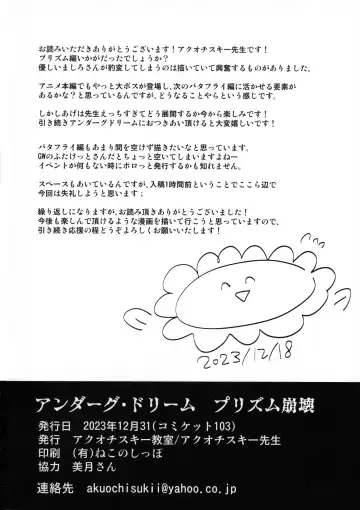 お読みいただきありがとうございます!アクオチスキー先生です!
プリズム編いかがだったでしょうか?
優しいましろさんが豹変してしまうのは描いていて興奮するものがありました。
アニメ本編でもやっと大ボスが登場し、次のバタフライ編に活かせる要素が
あるかな?と思っているんですが、どうなることやらという感じです。
しかしあげは先生えっちすぎてどう展開するか今から楽しみです!
引き続きアンダーグドリームにおつきあい頂けると大変嬉しいです!
バタフライ編もあまり間を空けず描きたいなと思っています。
GWのふたけっとさんだとちょっと空いてしまいますよねー
イベントが何もない時にポロっと発行するかも知れません。
スペースもあいているんですが、入稿1時間前ということでここら辺で
今回は失礼しようと思います;
繰り返しになりますが、お読み頂きありがとうございました!
今後も楽しんで頂けるような漫画を描いて行こうと思っていますので、
引き続き応援の程どうぞよろしくお願いいたします!
2023/12/18
アンダーグ・ドリーム プリズム崩壊
発行日 2023年12月31(コミケット103)
発行 アクオチスキー教室/アクオチスキー先生
印刷 (有)ねこのしっぽ
協力 美月さん
連絡先 akuochisukii@yahoo.co.jp